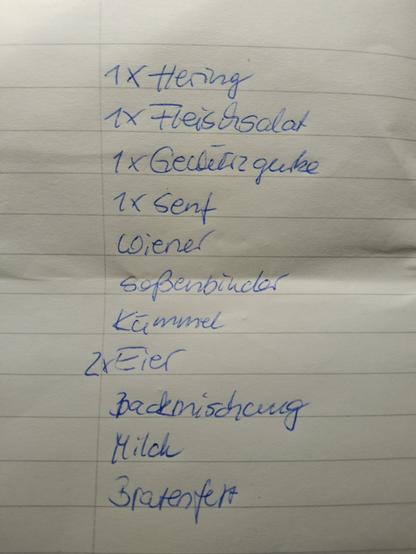 1x Hering
1x Fleischsalat
1x Gewürzgurke
1x Senf
Wiener
Soßenbinder
Kümmel
2x Eier
Backmischung
Milch
Bratenfett